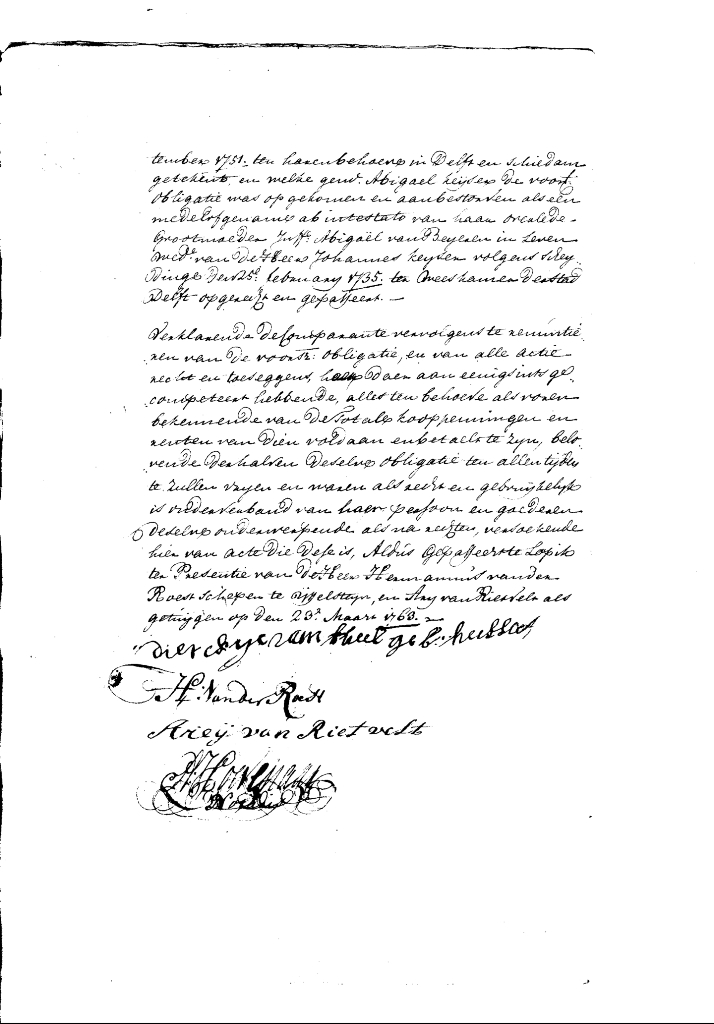 tember 1751. ten haren behoeve in Delft en Schiedam
getekent, en welke gem. Abigael Keyser de voors:
obligatie was opgekomen en aanbestorven als een
mede erfgename ab intestato van haar overlede
Grootmoeder Juffr. Abigaël van Beyeren in Leven
Wede. van de Heer Johannes Keyser volgens Schey
dinge den 25e. february 1735. ter Weeskamer der stad
Delft opgeregt en gepasseert. —
Verklarende de Comparante vervolgens te renuntie
nen van de voorsz: obligatie, en van alle actie
regt en toeseggens, haer daer aan eenigsints ge
competeert hebbende, alles ten behoeve als voren
bekennende van de Totale kooppenningen en
renten van dien voldaan en betaelt te zyn, belo
vende derhalven deselve obligatie ten allen tyden
te zullen vryen en waren als regt en gebruykelyk
is onder verband van haer persoon en goederen
deselve onderwerpende als na regten, versoekende
hier van acte die dese is, Aldus Gepasseert te Lopik
ter Presentie van de Heer Hermannus van der
Roest Schepen te Ysselsteyn, en Ary van Rietvelt als
getuygen op den 23e. Maart 1763.
H: Van der Roest
Areij van Rietvelt